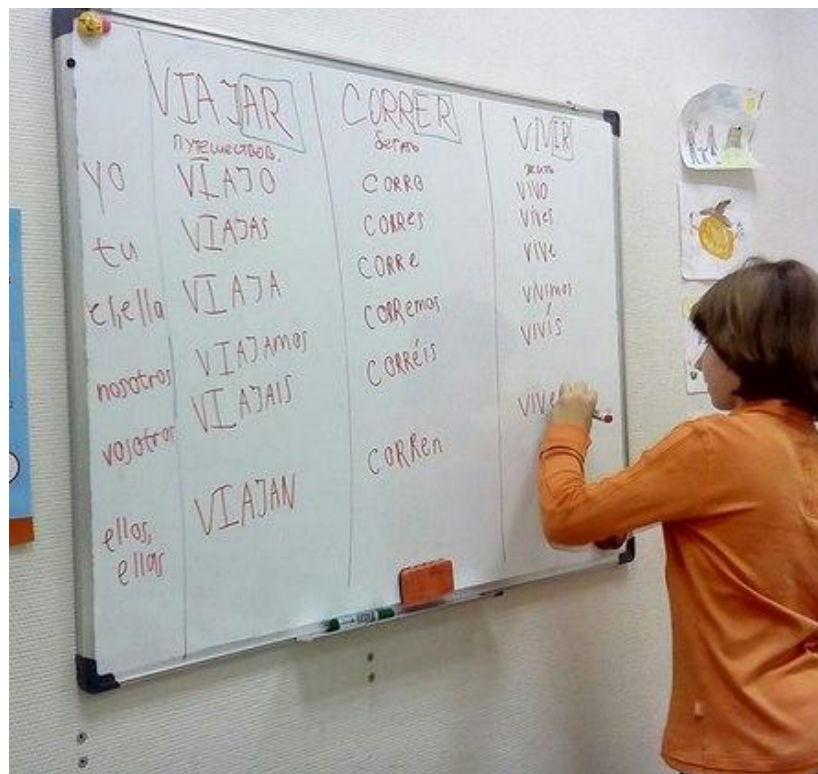 VIAJAR CORRER VIVIR
путешествов. бегать жить
yo VIAJO CORRO VIVO
tu VIAJAS CORRes vives
el, ella VIAJA CORRe vive
nosotros VIAJAmos CORRemos vivimos
vosotros VIAJAIS CORRéis vivís
ellos, ellas VIAJAN CORRen vive